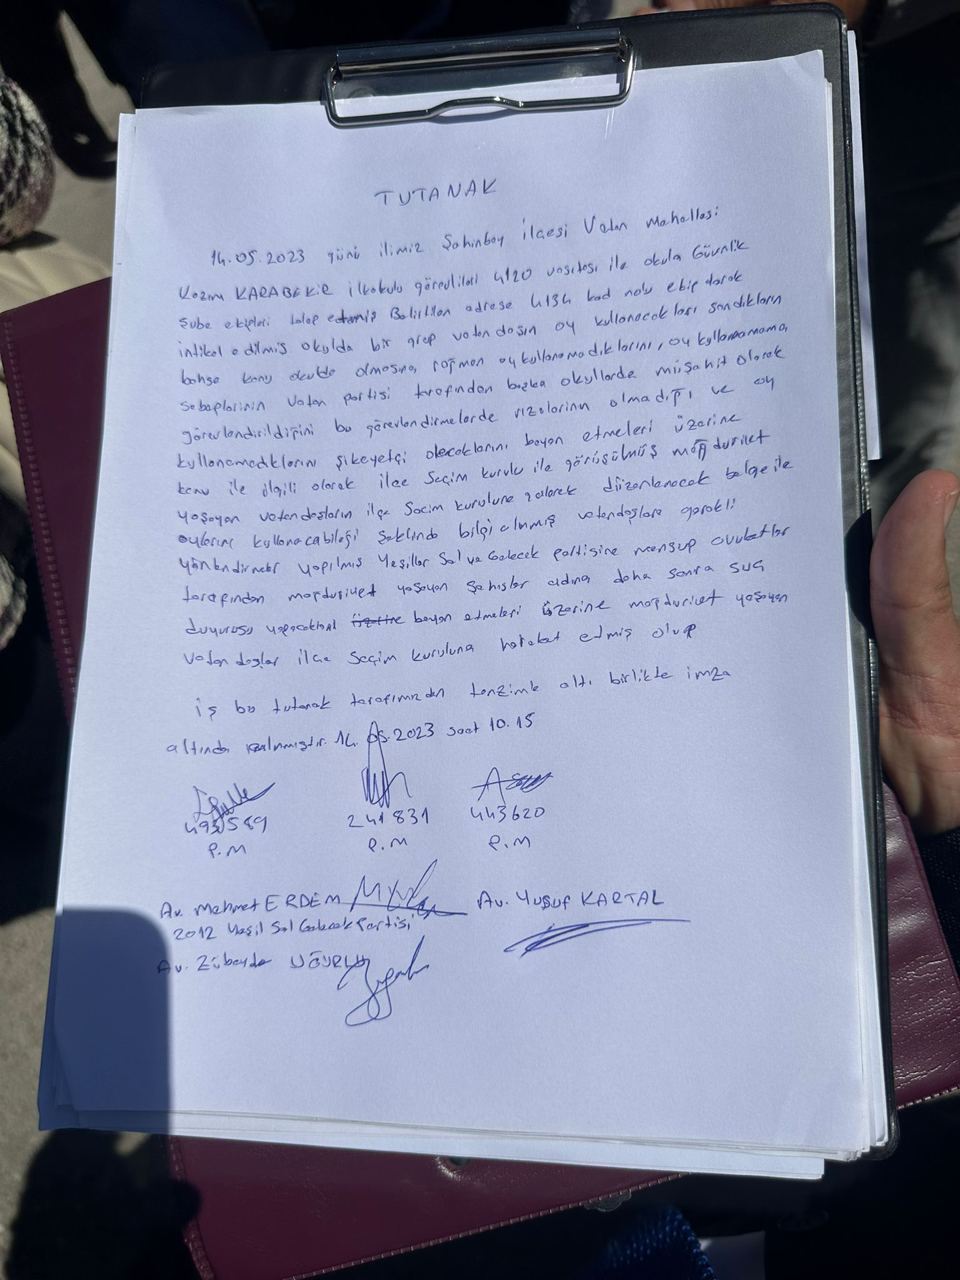 TUTANAK
14.05.2023 günü ilimiz Şahinbey ilçesi Vatan Mahallesi
Kazım KARABEKİR ilkokulu görevlileri 4120 vasıtası ile okula Güvnlik
Şube ekipleri talep etmiş Belirtilen adrese 4134 kod nolu ekip olarak
intikal edilmiş okulda bir grup vatandaşın oy kullanacakları sandıkların
bahse konu okulda olmasına rağmen oy kullanamadıklarını, oy kullanamama
sebeplerinin Vatan partisi tarafından başka okullarda müşahit olarak
görevlendirildiğini bu görevlendirmelerde rızalarının olmadığı ve oy
kullanamadıklarını şikeyetçi olacaklarını beyan etmeleri üzerine
konu ile ilgili olarak ilçe Seçim kurulu ile görüşülmüş mağduriyet
yaşayan vatandaşların ilçe Seçim kuruluna gelerek düzenlenecek belge ile
oylarını kullanacabileği şeklinde bilgi alınmış vatandaşlara gerekli
yönlendirmeler yapılmış Yeşiller Sol ve Gelecek partisine mensup avukatlar
tarafından mağduriyet yaşayan şahıslar adına daha sonra suç
duyurusu yapacakları üzerine beyan etmeleri üzerine mağduriyet yaşayan
vatandaşlar ilçe seçim kuruluna hareket etmiş olup
iş bu tutanak tarafımızdan tanzimle altı birlikte imza
altında alınmıştır. 14.05.2023 saat 10.15
493589 241831 443620
P.M P.M P.M
Av. Mehmet ERDEM Av. Yusuf KARTAL
2012 Yeşil Sol Gelecek Partisi
Av. Zübeyde UĞURLU